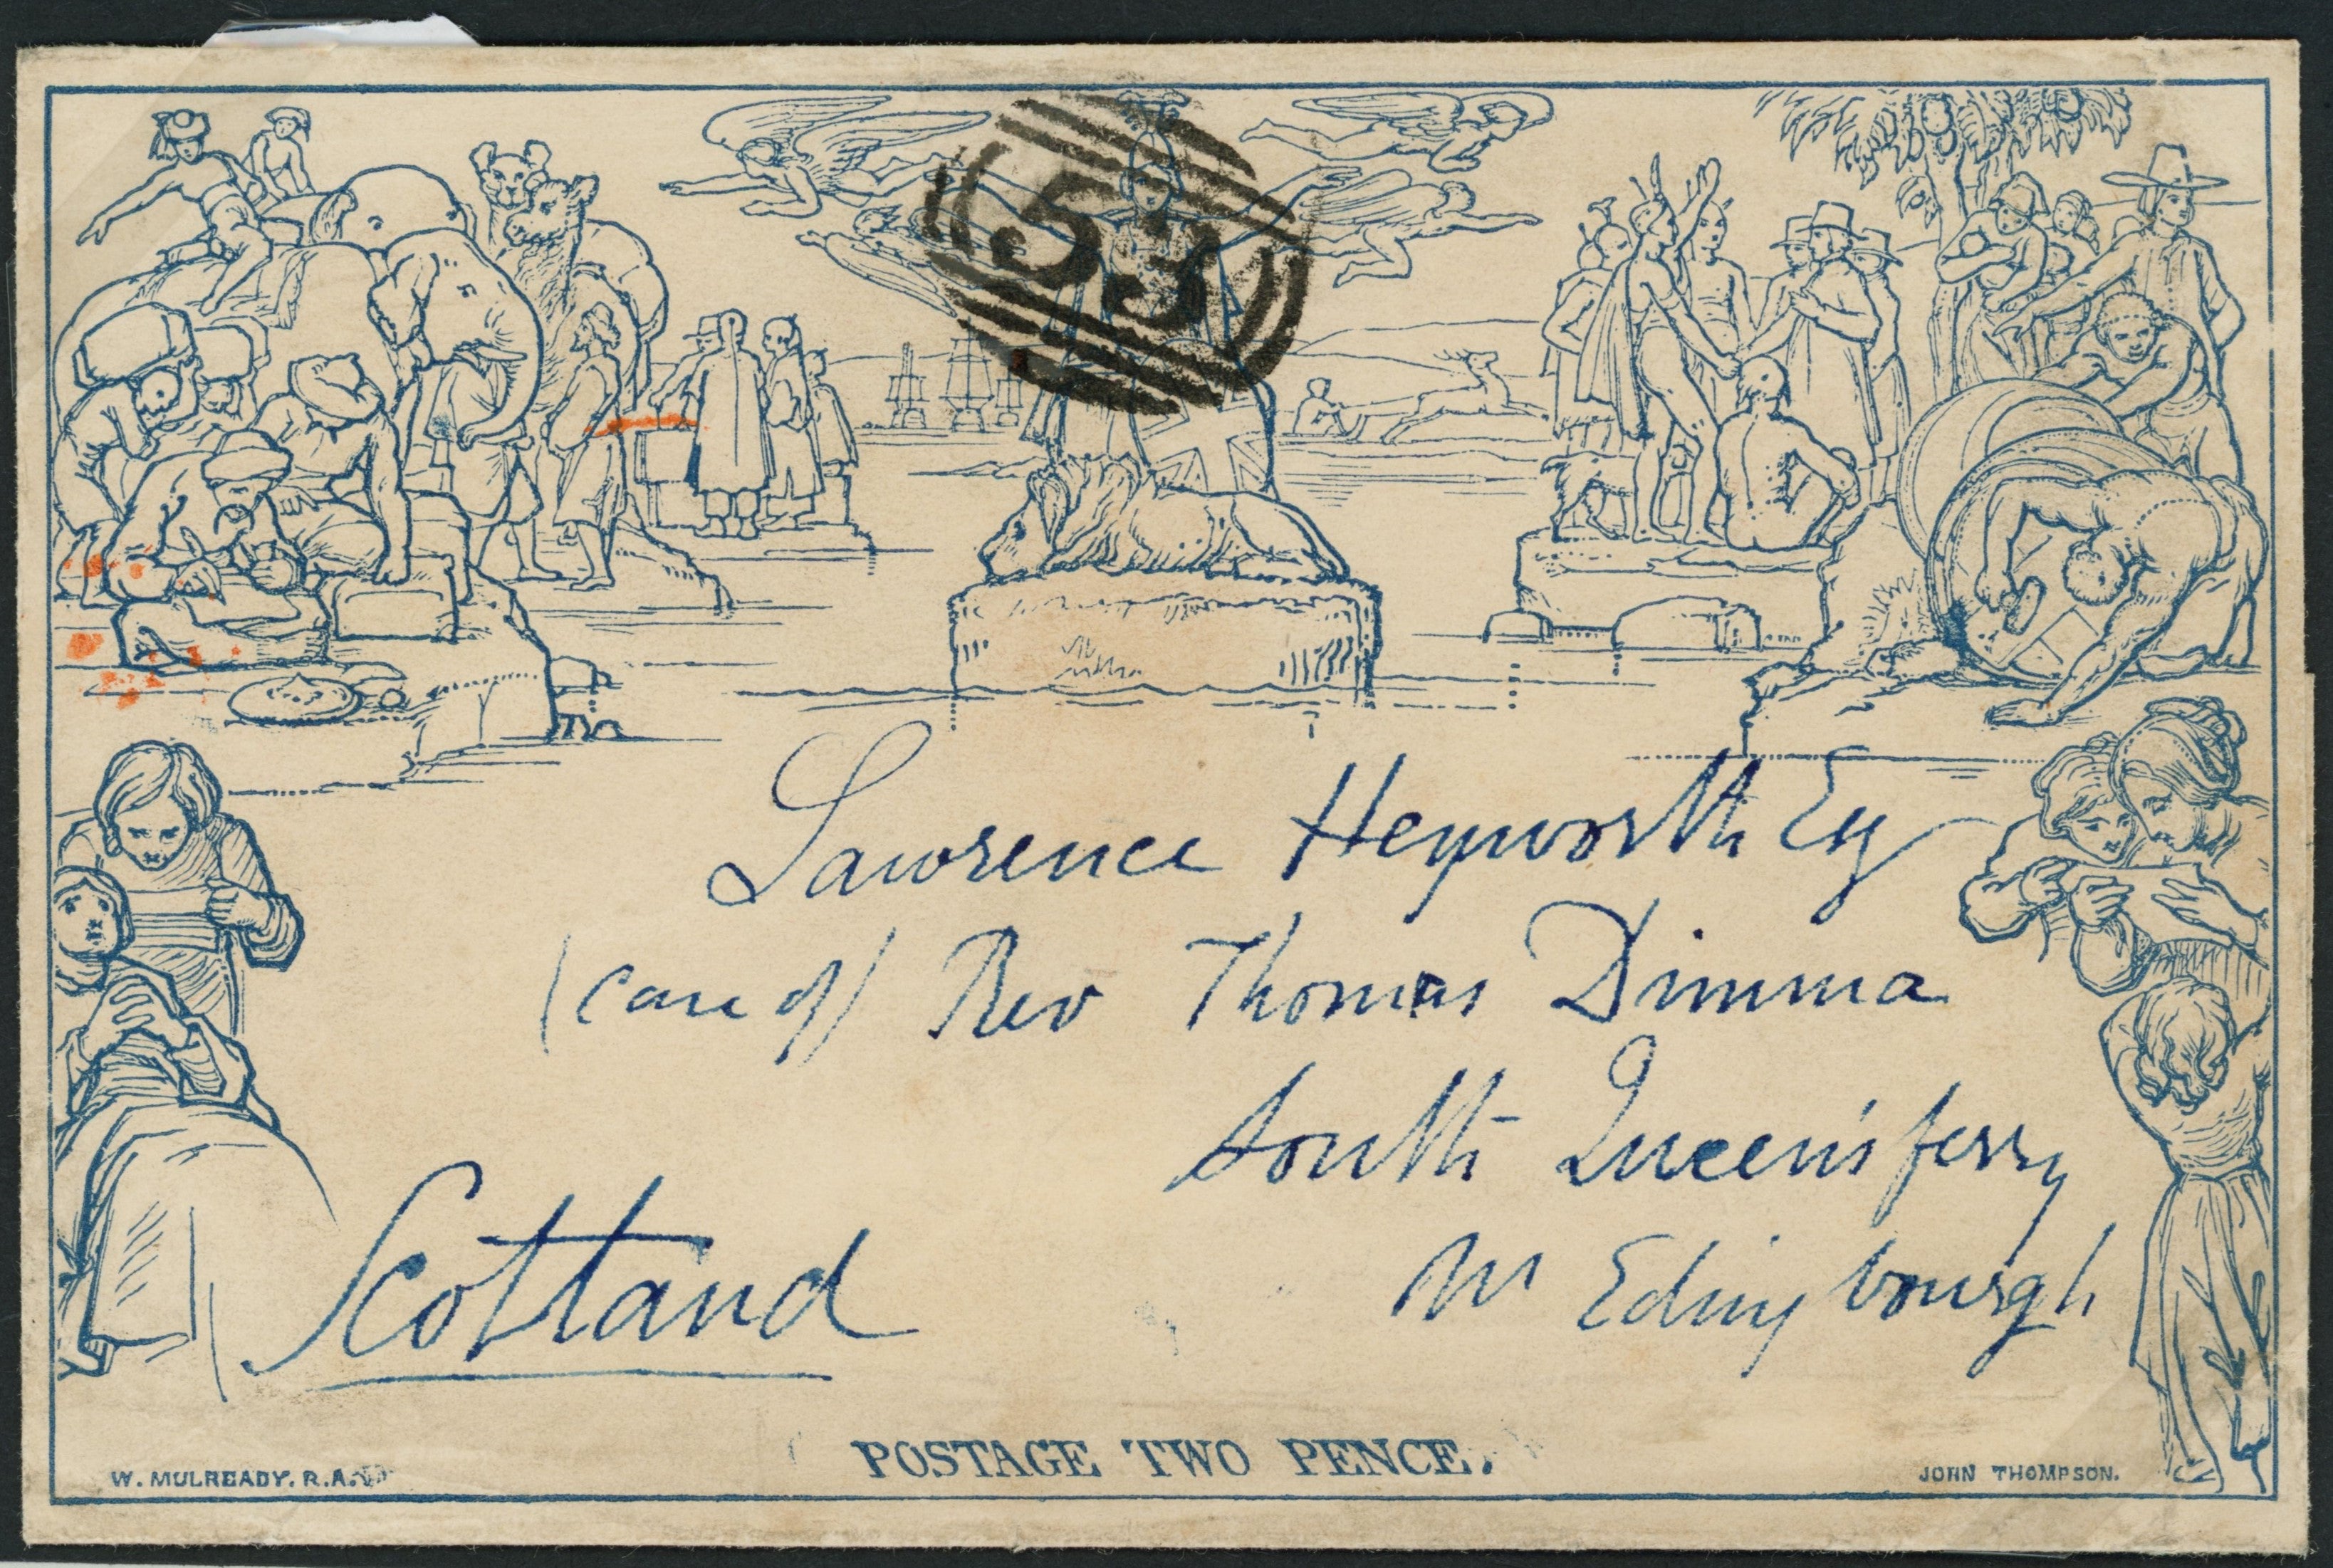 53
Lawrence Heyworth Esq
(care of) Rev Thomas Dimma
South Queensferry
Nr Edingbourgh
Scotland
POSTAGE TWO PENCE.
W. MULREADY. R.A.
JOHN THOMPSON.